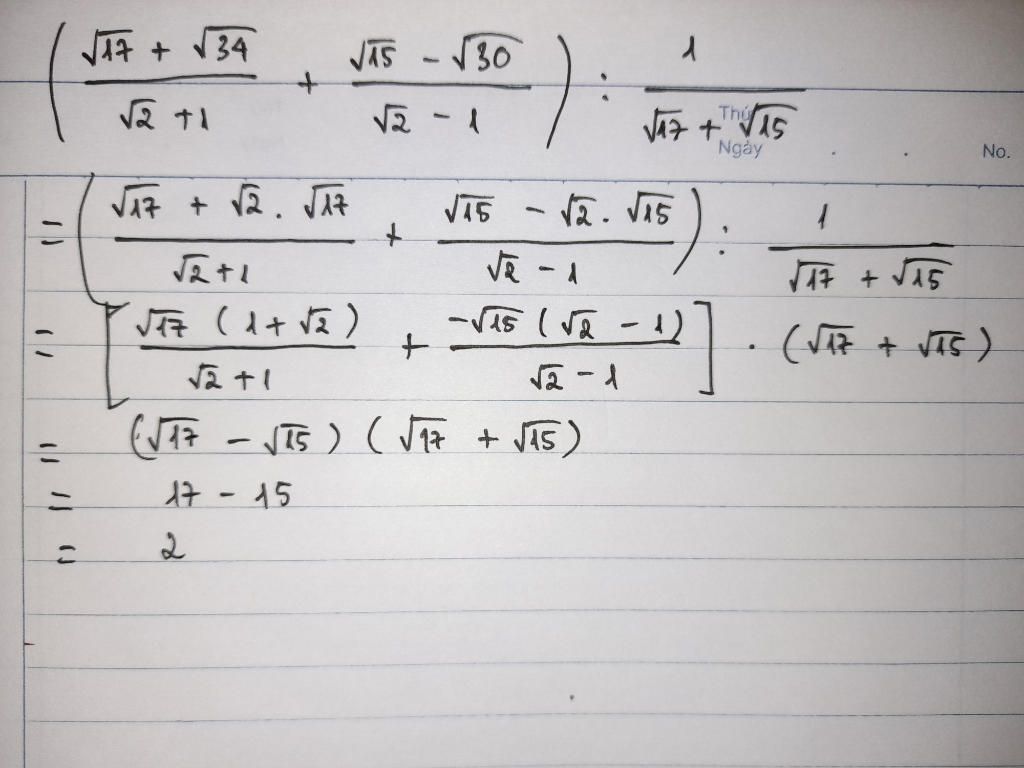 ( (√17 + √34)/(√2 + 1) + (√15 − √30)/(√2 − 1) ) : 1/(√17 + √15)
Thứ
Ngày . . No.
= ( (√17 + √2 . √17)/(√2 + 1) + (√15 − √2 . √15)/(√2 − 1) ) : 1/(√17 + √15)
= [ √17 (1 + √2)/(√2 + 1) + −√15 (√2 − 1)/(√2 − 1) ] . (√17 + √15)
= (√17 − √15) (√17 + √15)
= 17 − 15
= 2